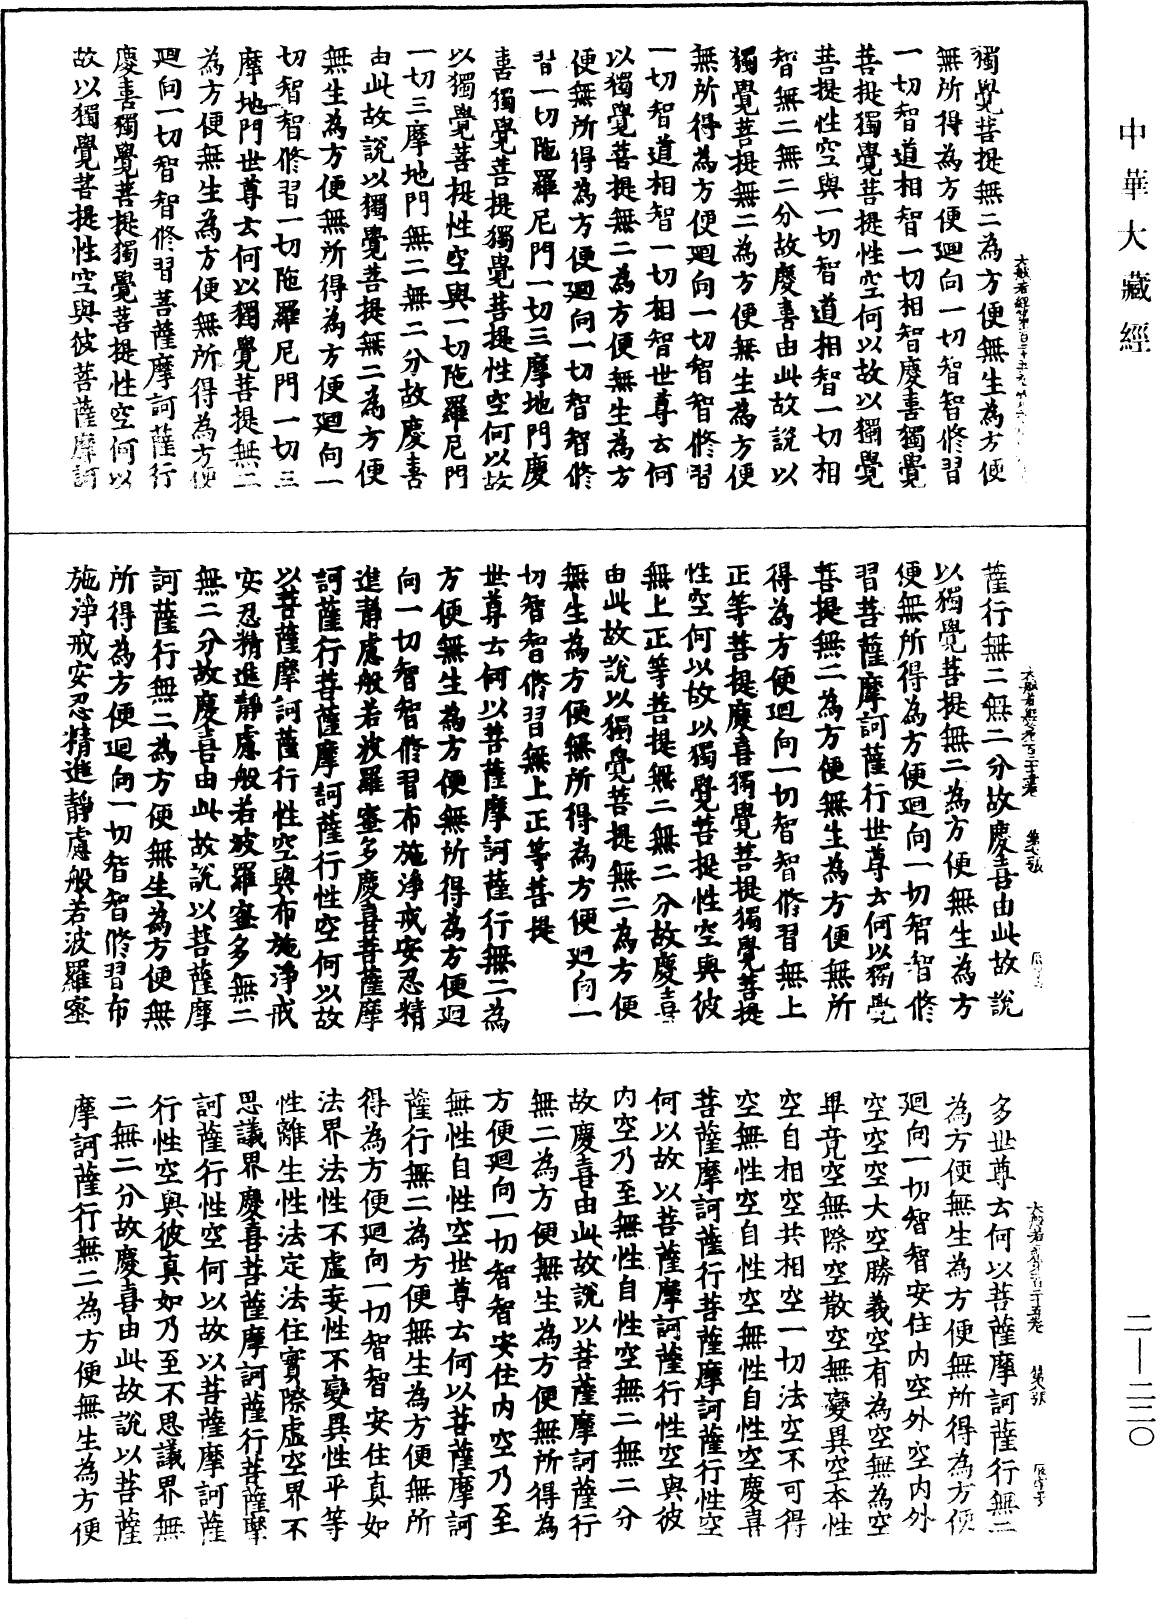 中華大藏經
獨覺菩提無二為方便無生為方便
無所得為方便迴向一切智智修習
一切智道相智一切相智慶喜獨覺
菩提獨覺菩提性空何以故以獨覺
菩提性空與一切智道相智一切相
智無二無二分故慶喜由此故說以
獨覺菩提無二為方便無生為方便
無所得為方便迴向一切智智修習
一切智道相智一切相智世尊云何
以獨覺菩提無二為方便無生為方
便無所得為方便迴向一切智智修
習一切陁羅尼門一切三摩地門慶
喜獨覺菩提獨覺菩提性空何以故
以獨覺菩提性空與一切陁羅尼門
一切三摩地門無二無二分故慶喜
由此故說以獨覺菩提無二為方便
無生為方便無所得為方便迴向一
切智智修習一切陁羅尼門一切三
摩地門世尊云何以獨覺菩提無二
為方便無生為方便無所得為方便
迴向一切智智修習菩薩摩訶薩行
慶喜獨覺菩提獨覺菩提性空何以
故以獨覺菩提性空與彼菩薩摩訶
薩行無二無二分故慶喜由此故說
以獨覺菩提無二為方便無生為方
便無所得為方便迴向一切智智修
習菩薩摩訶薩行世尊云何以獨覺
菩提無二為方便無生為方便無所
得為方便迴向一切智智修習無上
正等菩提慶喜獨覺菩提獨覺菩提
性空何以故以獨覺菩提性空與彼
無上正等菩提無二無二分故慶喜
由此故說以獨覺菩提無二為方便
無生為方便無所得為方便迴向一
切智智修習無上正等菩提
世尊云何以菩薩摩訶薩行無二為
方便無生為方便無所得為方便迴
向一切智智修習布施淨戒安忍精
進靜慮般若波羅蜜多慶喜菩薩摩
訶薩行菩薩摩訶薩行性空何以故
以菩薩摩訶薩行性空與布施淨戒
安忍精進靜慮般若波羅蜜多無二
無二分故慶喜由此故說以菩薩摩
訶薩行無二為方便無生為方便無
所得為方便迴向一切智智修習布
施淨戒安忍精進靜慮般若波羅蜜
大般若經第百二十五卷 第八張
多世尊云何以菩薩摩訶薩行無二
為方便無生為方便無所得為方便
迴向一切智智安住內空外空內外
空空空大空勝義空有為空無為空
畢竟空無際空散空無變異空本性
空自相空共相空一切法空不可得
空無性空自性空無性自性空慶喜
菩薩摩訶薩行菩薩摩訶薩行性空
何以故以菩薩摩訶薩行性空與彼
內空乃至無性自性空無二無二分
故慶喜由此故說以菩薩摩訶薩行
無二為方便無生為方便無所得為
方便迴向一切智智安住內空乃至
無性自性空世尊云何以菩薩摩訶
薩行無二為方便無生為方便無所
得為方便迴向一切智智安住真如
法界法性不虛妄性不變異性平等
性離生性法定法住實際虛空界不
思議界慶喜菩薩摩訶薩行菩薩摩
訶薩行性空何以故以菩薩摩訶薩
行性空與彼真如乃至不思議界無
二無二分故慶喜由此故說以菩薩
摩訶薩行無二為方便無生為方便
二—二二〇